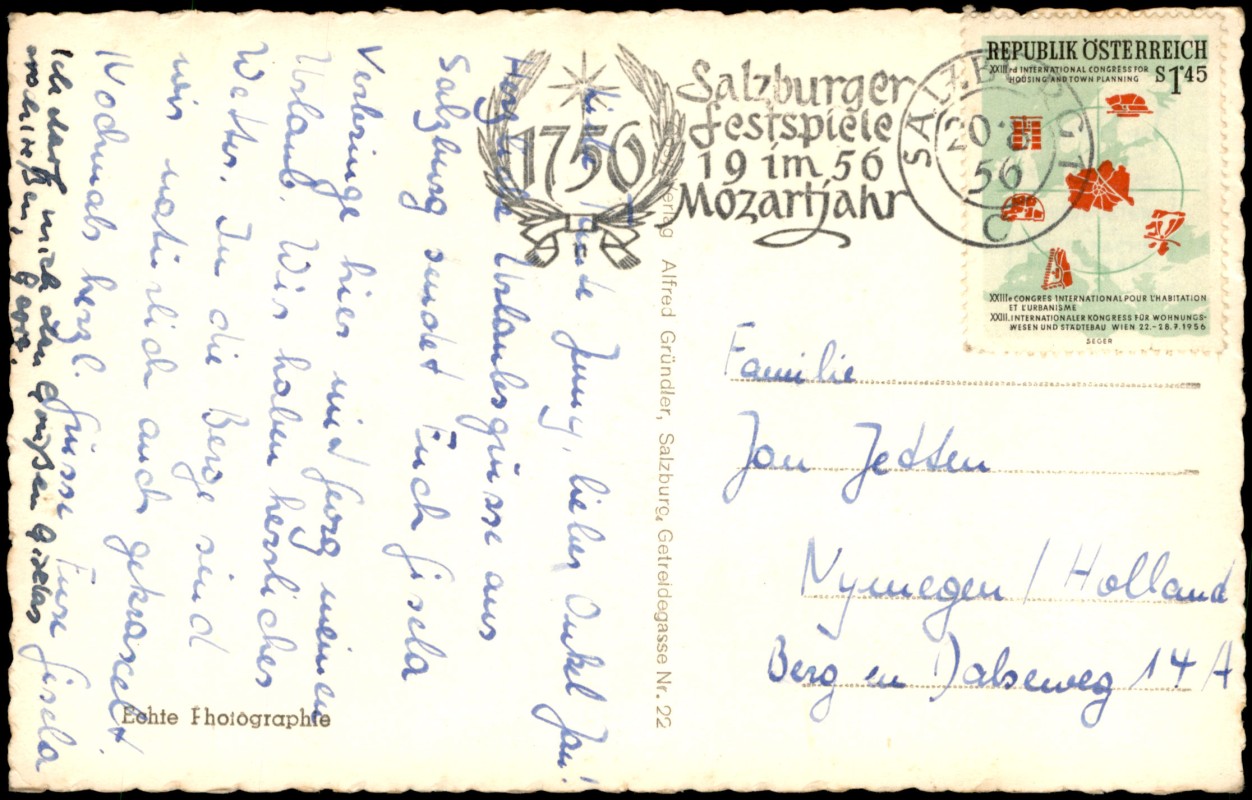 Liebe Tante Jenny, lieber Onkel Jan!
Herzliche Urlaubsgrüsse aus
Salzburg sendet Euch Gisela
Verbringe hier mit Georg meinen
Urlaub. Wir haben herrliches
Wetter. In die Berge sind
wir natürlich auch gekraxelt
Nochmals herzl. Grüsse Eure Gisela
Ich darf mich den Grüßen Giselas
Georg.
Echte Photographie
Verlag Alfred Gründler, Salzburg, Getreidegasse Nr. 22
1756
Salzburger
Festspiele
19 im 56
Mozartjahr
SALZBURG
56
C
REPUBLIK ÖSTERREICH
XXIIIrd INTERNATIONAL CONGRESS FOR
HOUSING AND TOWN PLANNING
S 1·45
XXIIIe CONGRES INTERNATIONAL POUR L'HABITATION
ET L'URBANISME
XXIII. INTERNATIONALER KONGRESS FÜR WOHNUNGS-
WESEN UND STÄDTEBAU WIEN 22.-28.7.1956
SEGER
Familie
Jan Jetten
Nymegen / Holland
Berg en Dalseweg 14 A